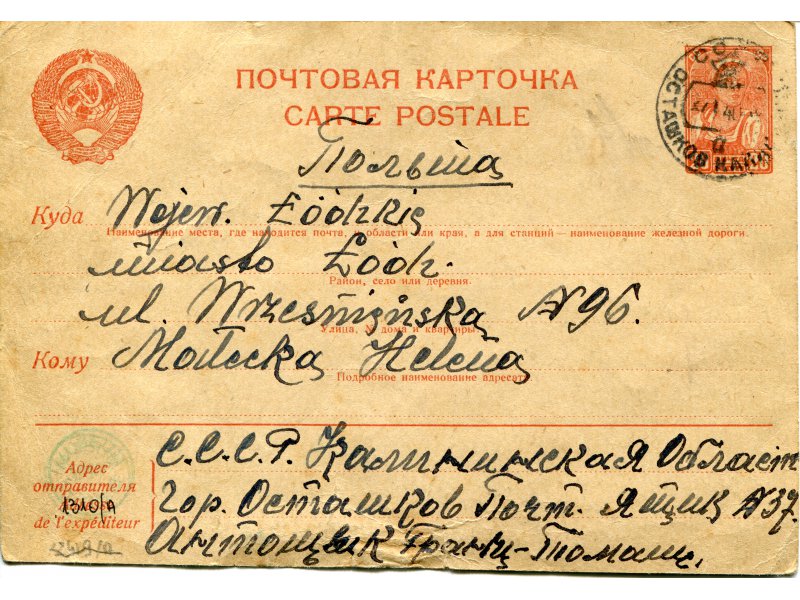 ПОЧТОВАЯ КАРТОЧКА
CARTE POSTALE
ОСТАШКОВ
Польша
Куда Wojew. Łódzkie
Наименование места, где находится почта, и области или края, а для станций — наименование железной дороги.
miasto Łódz.
Район, село или деревня.
ul. Wrzesnińska N 96.
Улица, № дома и квартиры
Кому Małecka Helena
Подробное наименование адресата
Адрес отправителя
de l'expéditeur
1310/А
С.С.С.Р. Калининская Област
Гор. Осташков Почт. Ящик N37.
Антощик Франц-Томаш.